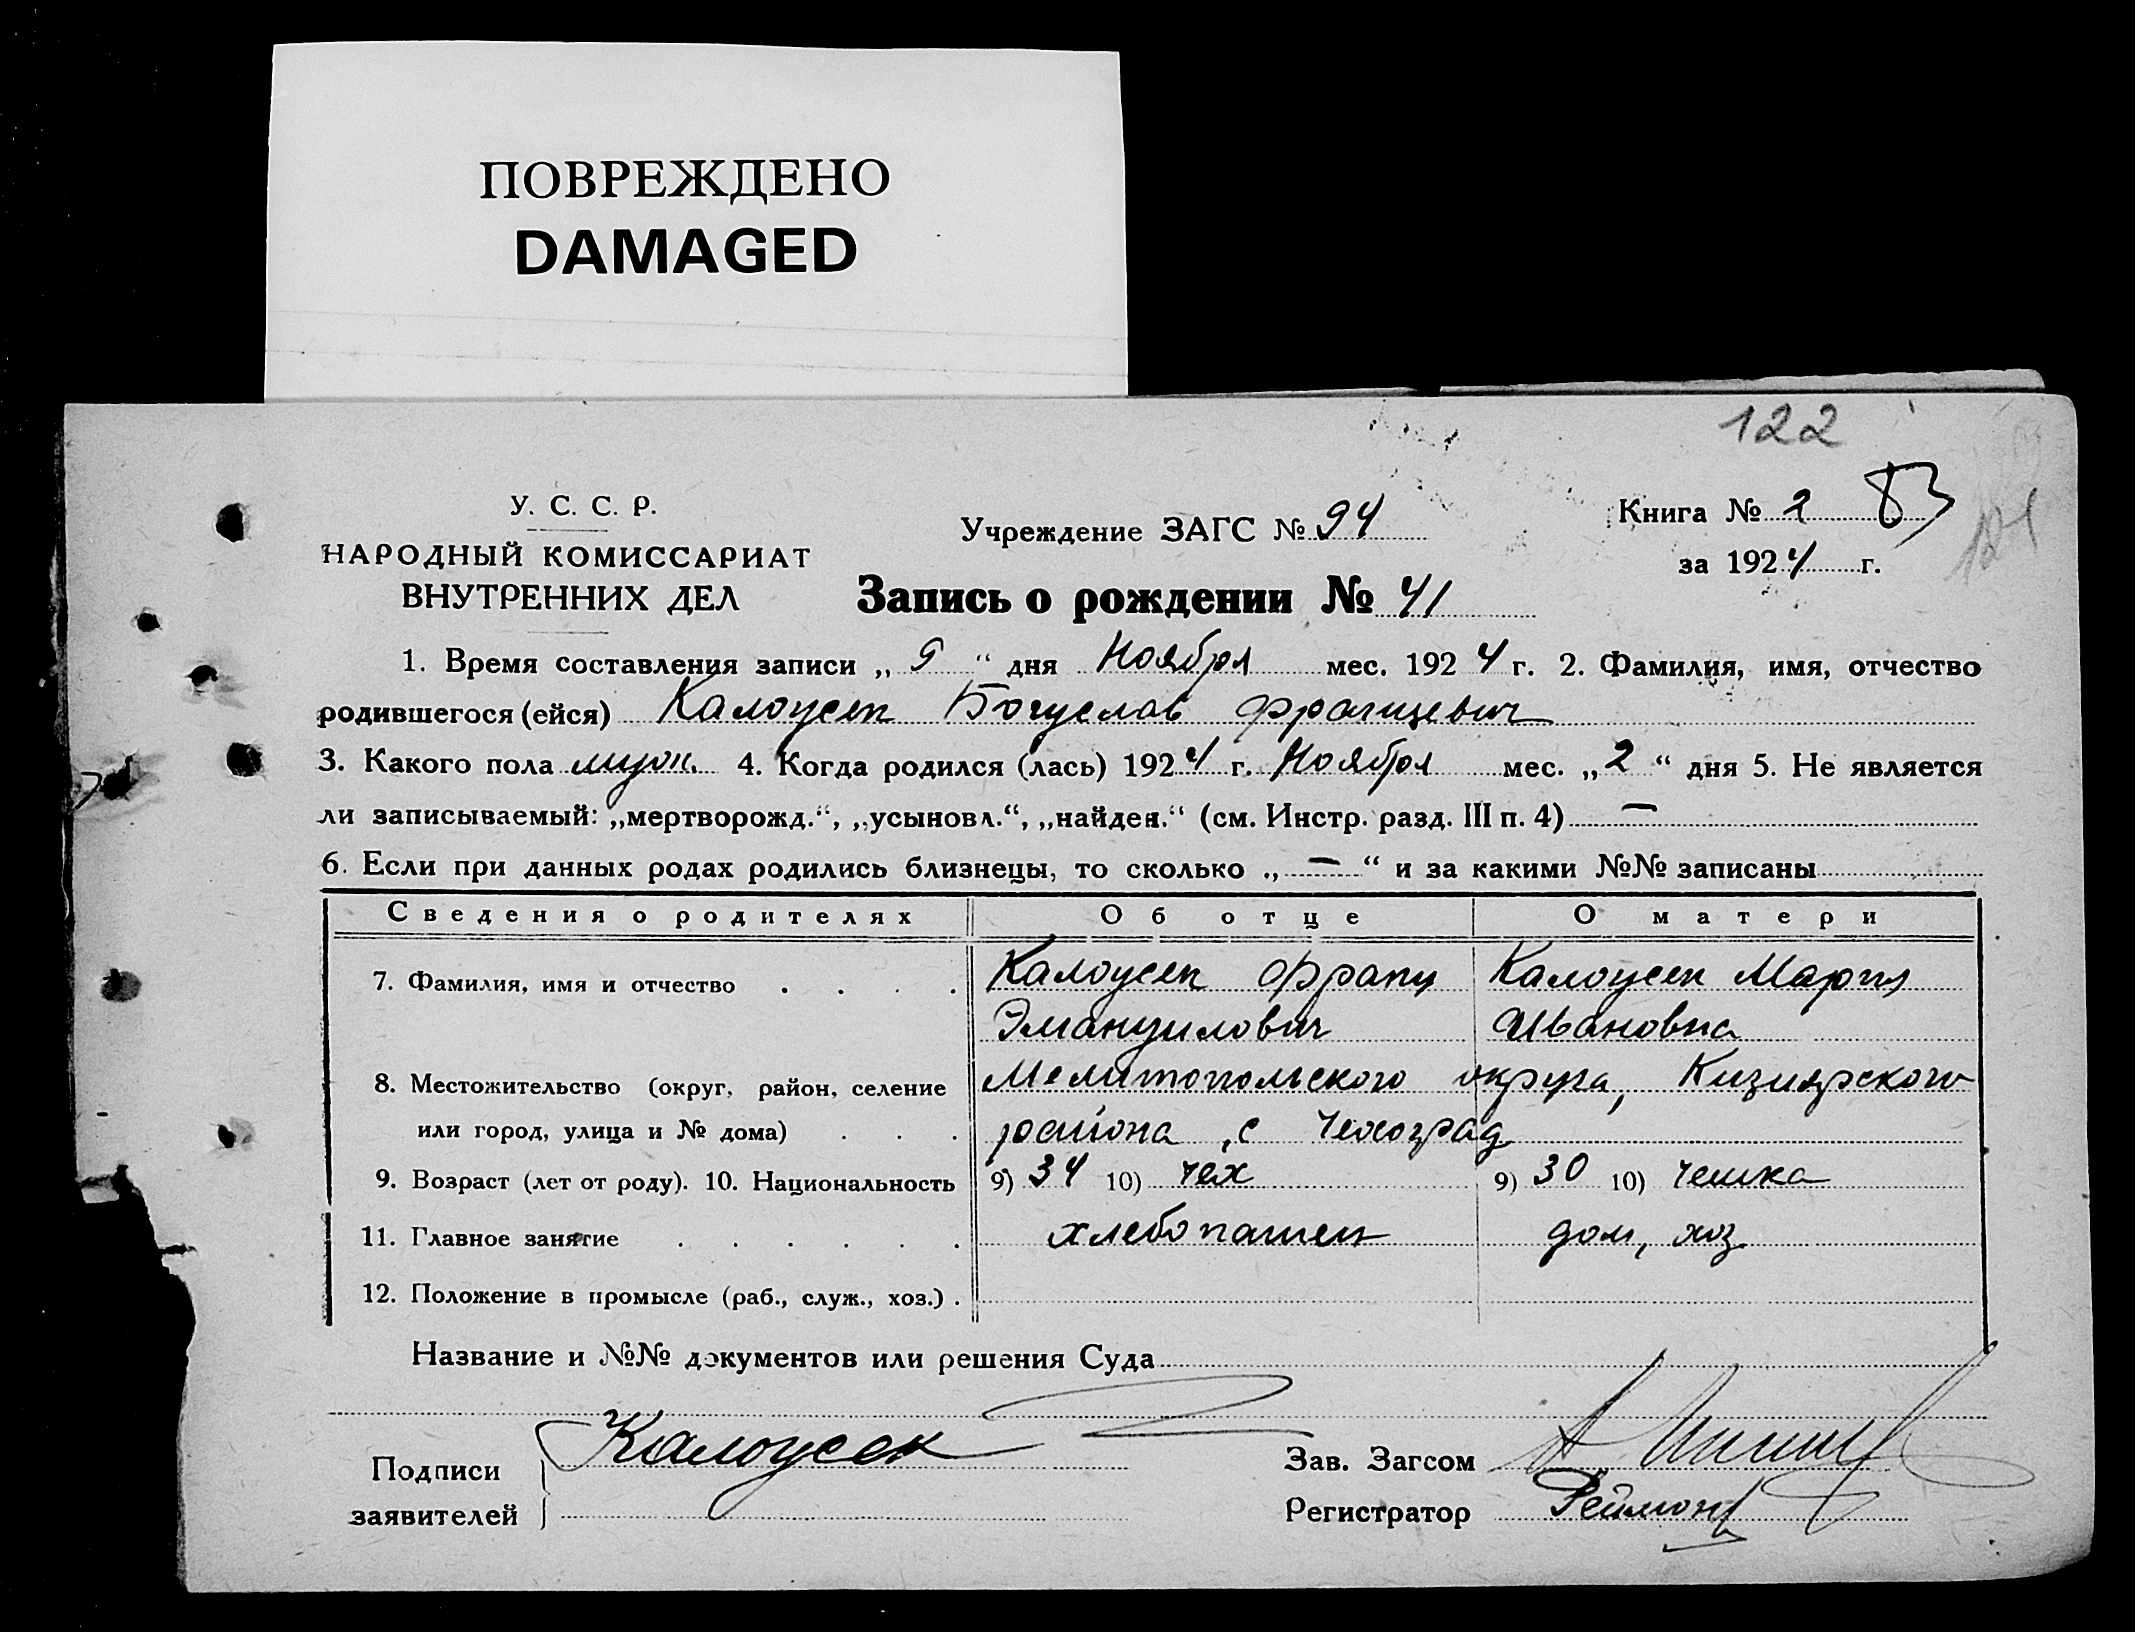 ПОВРЕЖДЕНО
DAMAGED
122
У. С. С. Р.
НАРОДНЫЙ КОМИССАРИАТ
ВНУТРЕННИХ ДЕЛ
Учреждение ЗАГС № 94
Книга № 2 83
121
за 1924 г.
Запись о рождении № 41
1. Время составления записи „ 9 “ дня Ноября мес. 1924 г. 2. Фамилия, имя, отчество
родившегося (ейся) Калоусек Богуслав Францевич
3. Какого пола муж. 4. Когда родился (лась) 1924 г. Ноября мес. „2“ дня 5. Не является
ли записываемый: „мертворожд.“, „усыновл.“, „найден.“ (см. Инстр. разд. III п. 4) —
6. Если при данных родах родились близнецы, то сколько „—“ и за какими №№ записаны
Сведения о родителях Об отце О матери
7. Фамилия, имя и отчество . . . . Калоусек Франц Калоусек Мария
Эмануилович Ивановна
8. Местожительство (округ, район, селение Мелитопольского округа, Кизиярского
или город, улица и № дома) . . . района, с Чехоград
9. Возраст (лет от роду). 10. Национальность 9) 34 10) чех 9) 30 10) чешка
11. Главное занятие . . . . . . хлебопашец дом, хоз.
12. Положение в промысле (раб., служ., хоз.) .
Название и №№ документов или решения Суда
Подписи
заявителей
Калоусек
Зав. Загсом
Регистратор